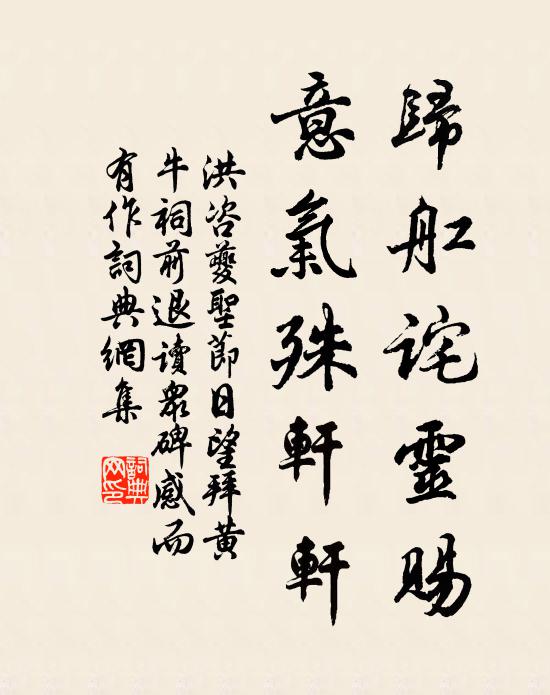 歸舡詫靈賜
意氣殊軒軒
洪咨夔聖節日望拜黃
牛祠前退讀眾碑感而
有作詞典網集
詞典
网